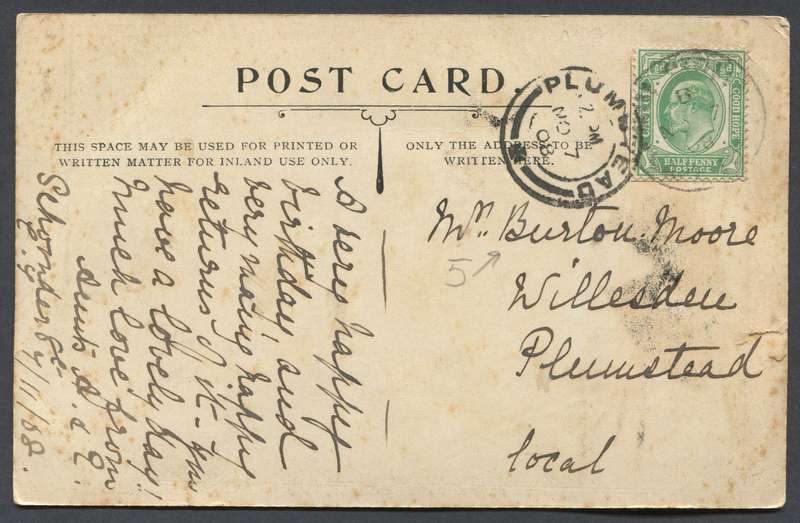 POST CARD.
THIS SPACE MAY BE USED FOR PRINTED OR
WRITTEN MATTER FOR INLAND USE ONLY.
ONLY THE ADDRESS TO BE
WRITTEN HERE.
PLUMSTEAD
NO 7
08
GOOD HOPE
HALFPENNY
POSTAGE
A very happy
birthday! and
very many happy
returns of it - 
have a lovely day!
Much love from
Aunt A. E.
7/11/08.
Burton Moore
5
Willesden
Plumstead
local